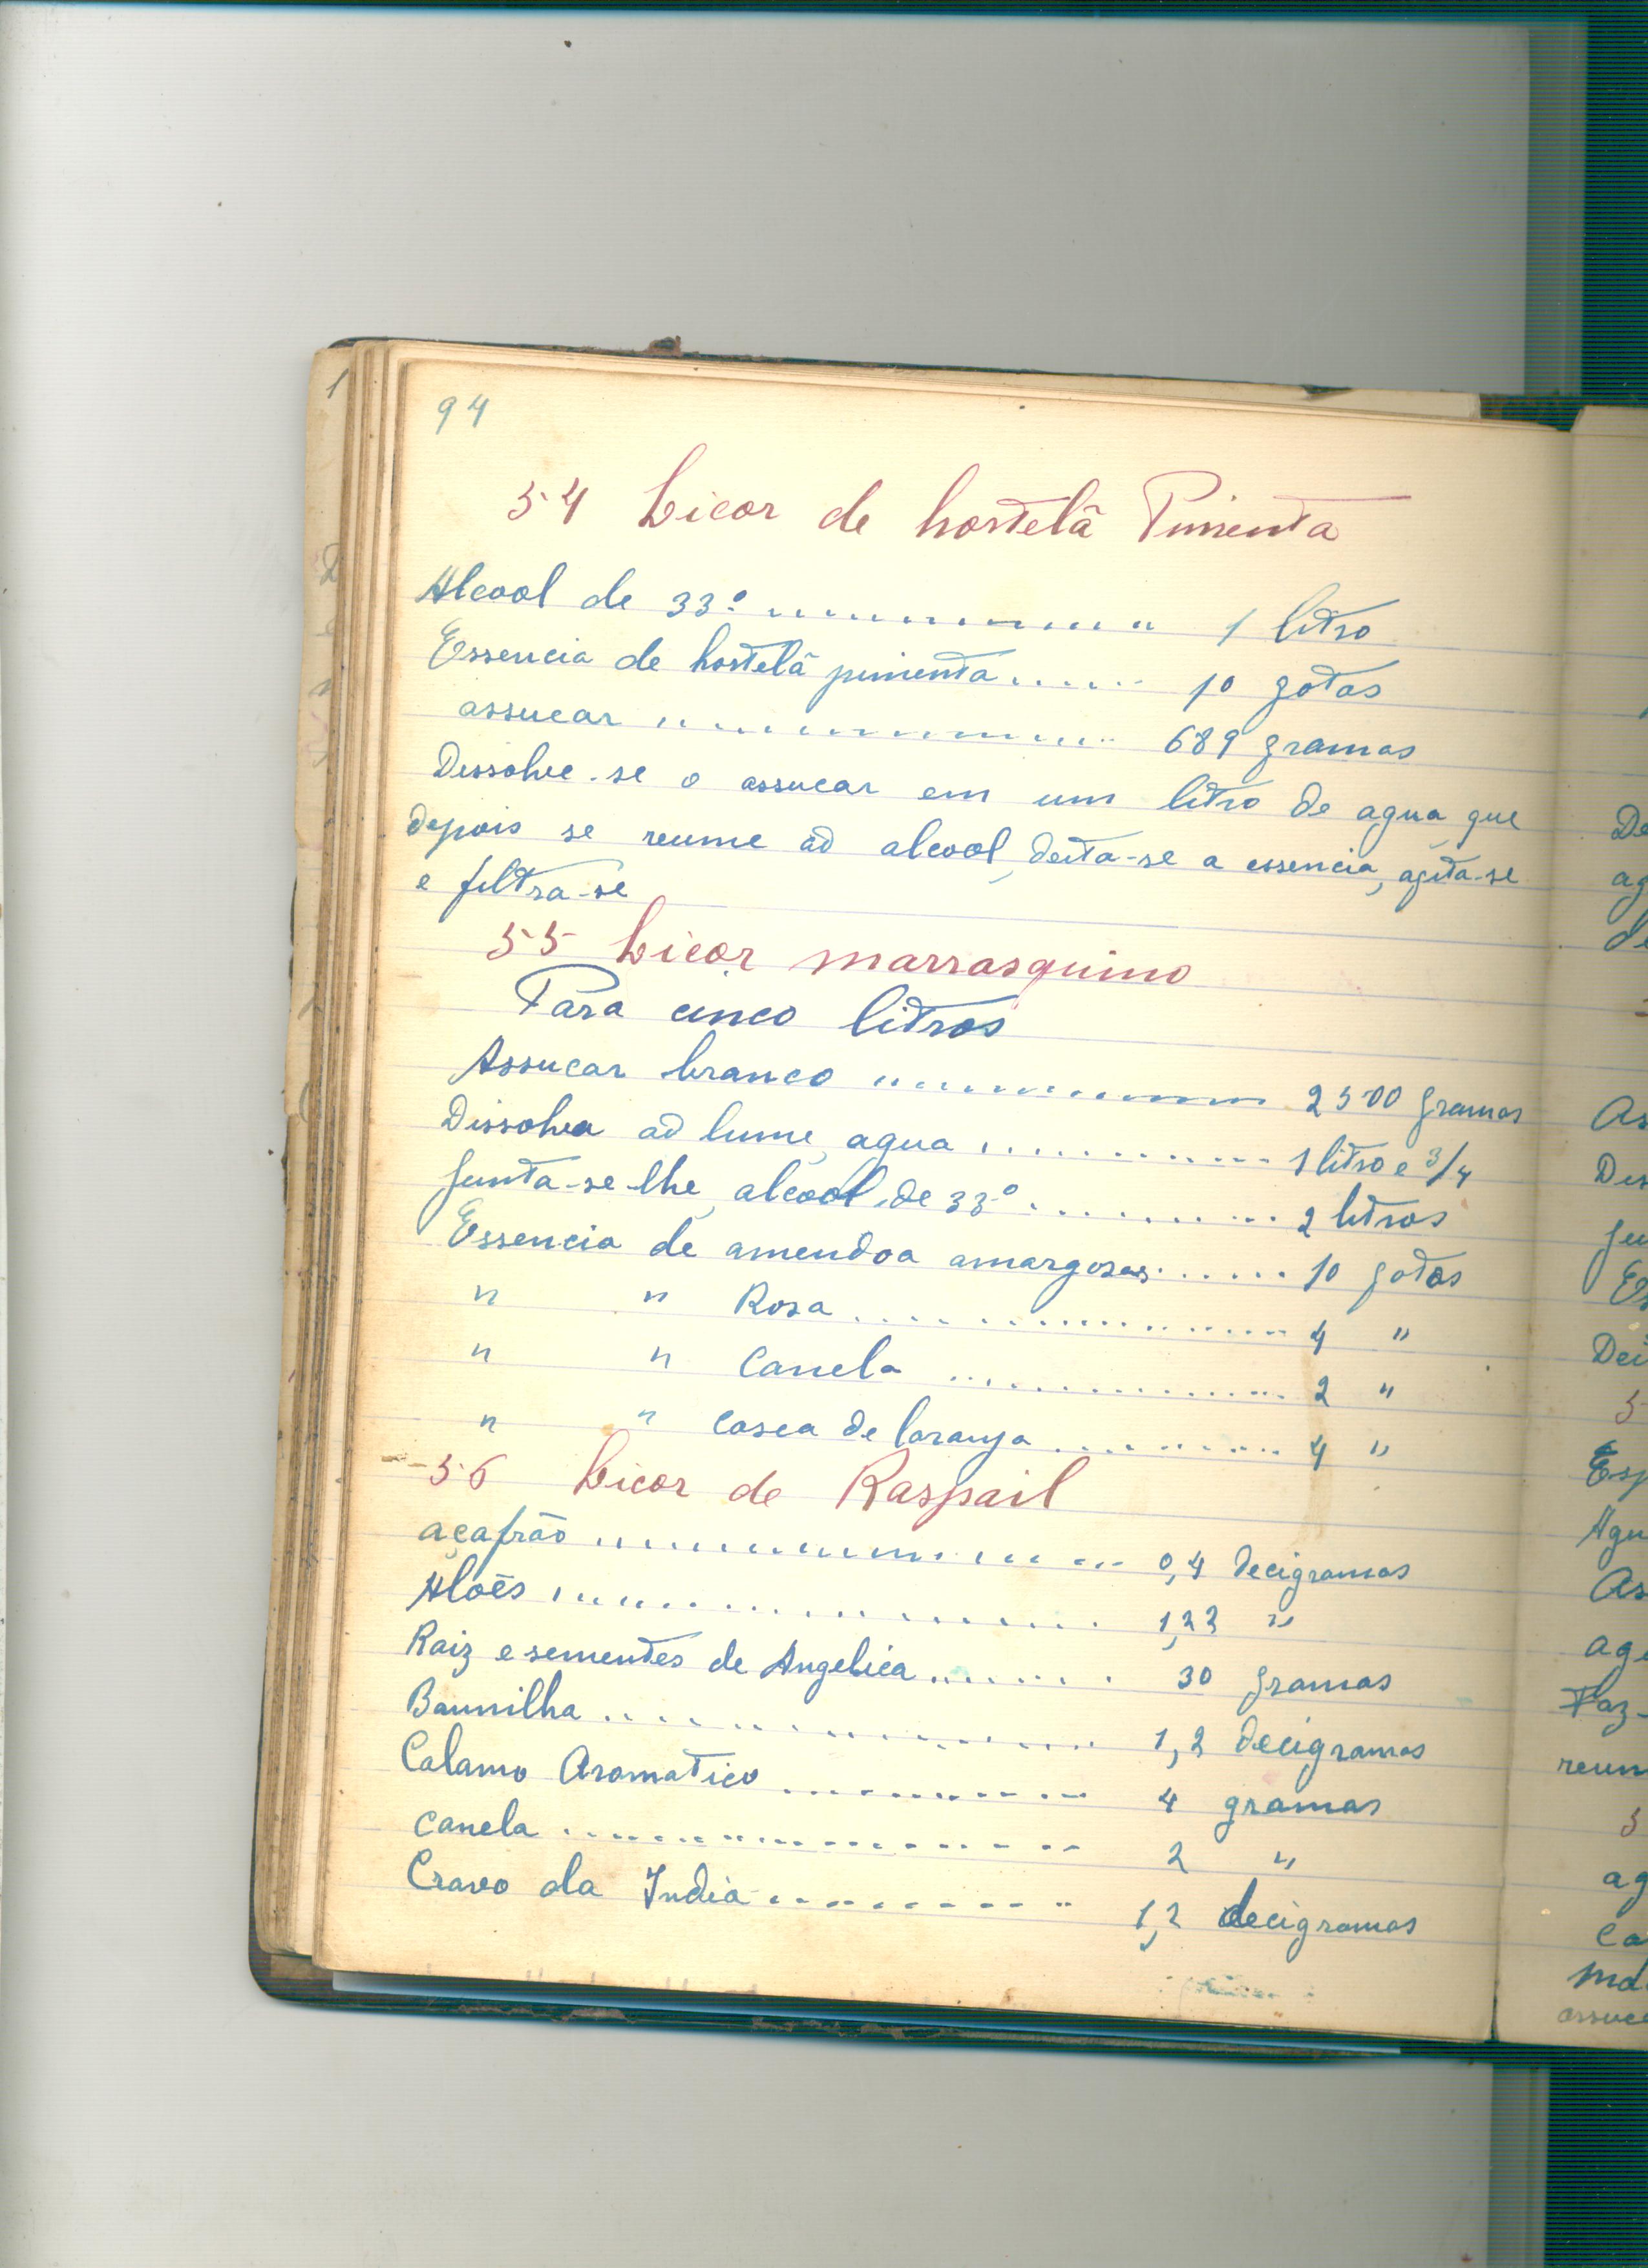 94
54 Licor de hortelã Pimenta
Alcool de 33º ............ 1 litro
Essencia de hortelã pimenta ...... 10 gotas
assucar ............ 689 gramas
Dissolve-se o assucar em um litro de agua que
depois se reume aõ alcool, deita-se a essencia, agita-se
e filtra-se
55 Licor marrasquino
Para cinco litros
Assucar branco ............ 2500 gramas
Dissolva aõ lume, agua ............ 1 litro e 3/4
Junta-se-lhe, alcool, de 33º ............ 2 litros
Essencia de amendoa amargosas ...... 10 gotas
" " Rosa ............ 4 "
" " Canela ............ 2 "
" " casca de laranja ............ 4 "
56 Licor de Raspail
açafrão ............ 0,4 decigramas
Aloēs ............ 1,22 "
Raiz e sementes de Angelica ....... 30 gramas
Baunilha ............ 1,2 decigramas
Calamo Aromatico ............ 4 gramas
Canela ............ 2 "
Cravo da India ............ 1,2 decigramas